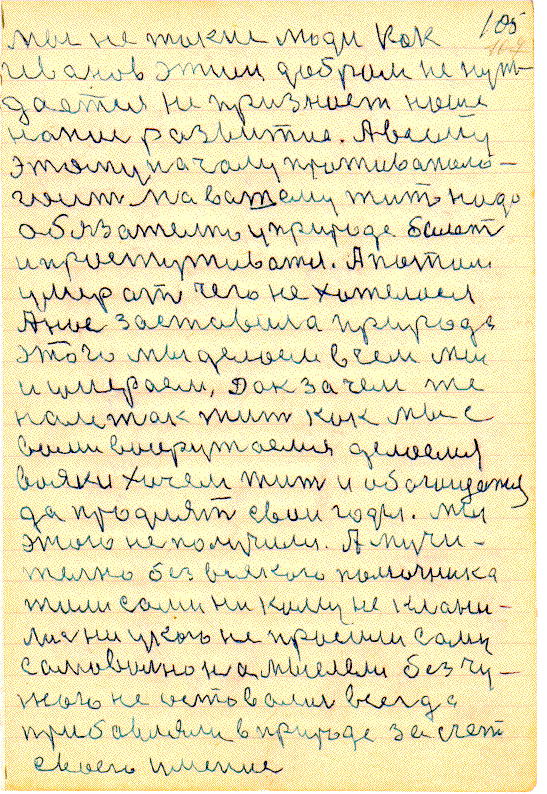 105
мы не такие люди как
Иванов этим добром не нуж-
дается не признает наше
такие развитие. А всему
этому началу противополо-
жит жить надо
обязательно у природе болет
и простуживатся. А потом
умират чего не хотелося
А нас заставила природа
этого мы делаем в чем мы
и умираем, Дак зачем же
нам так жит как мы с
вами вооружаемся делаемся
вояки хочем жит и обогащатся
да продлят свои годы. мы
этого не получили. А мучи-
телно без всякого помочника
жили сами ни кому не клани-
лися ни у кого не просили само
самоволно на мыслели без чу-
жого не оставалис всегда
прибавляли в природе за счет
своего умение